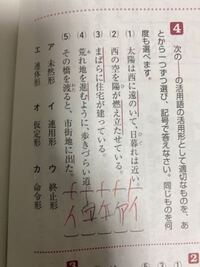 4 次の――の活用語の活用形として適切なものを、あ
とから一つずつ選び、記号で答えなさい。同じものを何
度も選べます。
(1) 太陽は西に遠のいて、日暮れは近い。
(2) 西の空を陽が燃え立たせている。
(3) まばらに住宅が建っている。
(4) 荒れ地を進むように、歩きづらい道
(5) その橋を渡ると、市街地に出た。
ア 未然形 イ 連用形 ウ 終止形
エ 連体形 オ 仮定形 カ 命令形